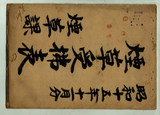 昭和十五年十一月分
煙草受拂表
煙草課